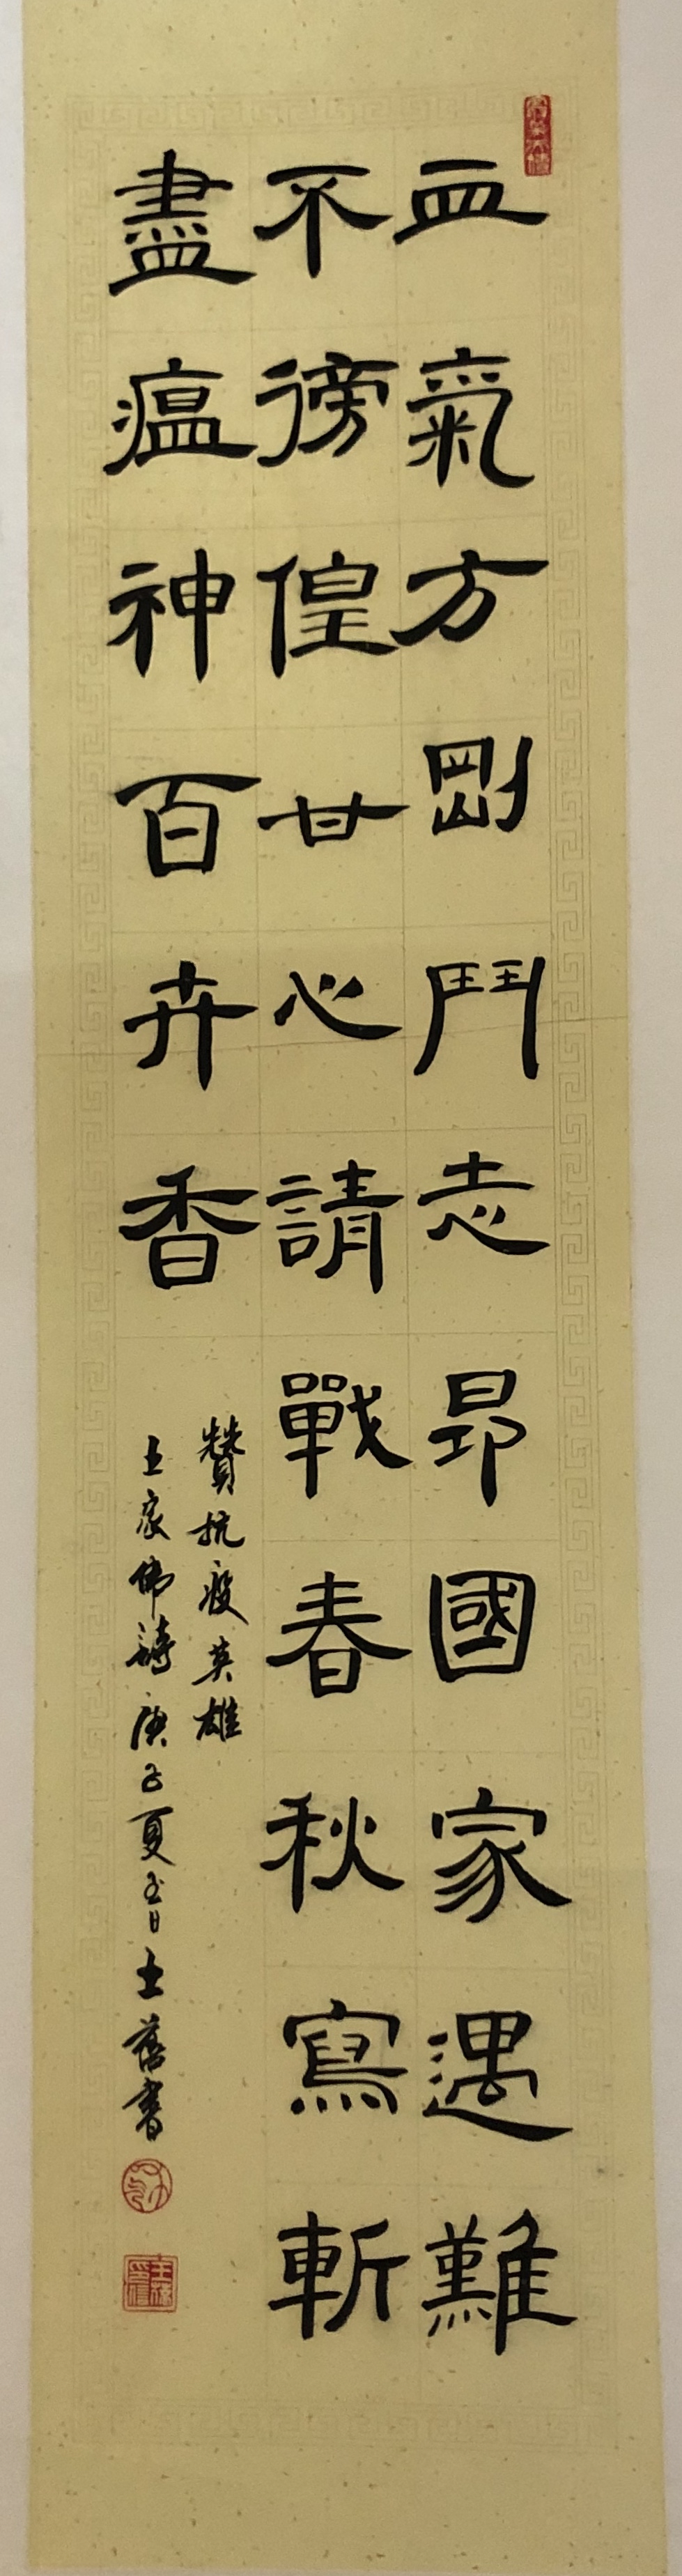 血氣方剛鬥志昂國家遇難
不徬徨甘心請戰春秋寫斬
盡瘟神百卉香
贊抗疫英雄
王家佛詩庚子夏吉日王蓓書